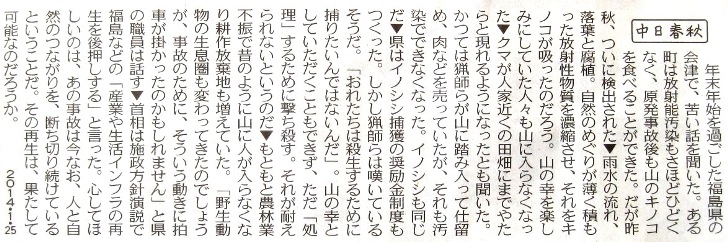 中日春秋
年末年始を過ごした福島県の
会津で、苦い話を聞いた。ある
町は放射能汚染もさほどひどく
なく、原発事故後も山のキノコ
を食べることができた。だが昨
秋、ついに検出された▼雨水の流れ、
落葉と腐植。自然のめぐりが薄く積も
った放射性物質を濃縮させ、それをキ
ノコが吸ったのだろう。山の幸を楽し
みにしていた人々も山に入らなくなっ
た▼クマが人家近くの田畑にまでやた
らと現れるようになったとも聞いた。
かつては猟師らが山に踏み入って仕留
め、肉などを売っていたが、それも汚
染でできなくなった。イノシシも同じ
だ▼県はイノシシ捕獲の奨励金制度も
つくった。しかし猟師らは嘆いている
そうだ。「おれたちは殺生するために
捕りたいんではないんだ」。山の幸と
していただくこともできず、ただ「処
理」するために撃ち殺す。それが耐え
られないというのだ▼もともと農林業
不振で昔のように山に人が入らなくな
り耕作放棄地も増えていた。「野生動
物の生息圏も変わってきたのでしょう
が、事故のために、そういう動きに拍
車が掛かったのかもしれません」と県
の職員は話す▼首相は施政方針演説で
福島などの「産業や生活インフラの再
生を後押しする」と言った。心してほ
しいのは、あの事故は今なお、人と自
然のつながりを、断ち切り続けている
ということだ。その再生は、果たして
可能なのだろうか。 2014・1・25